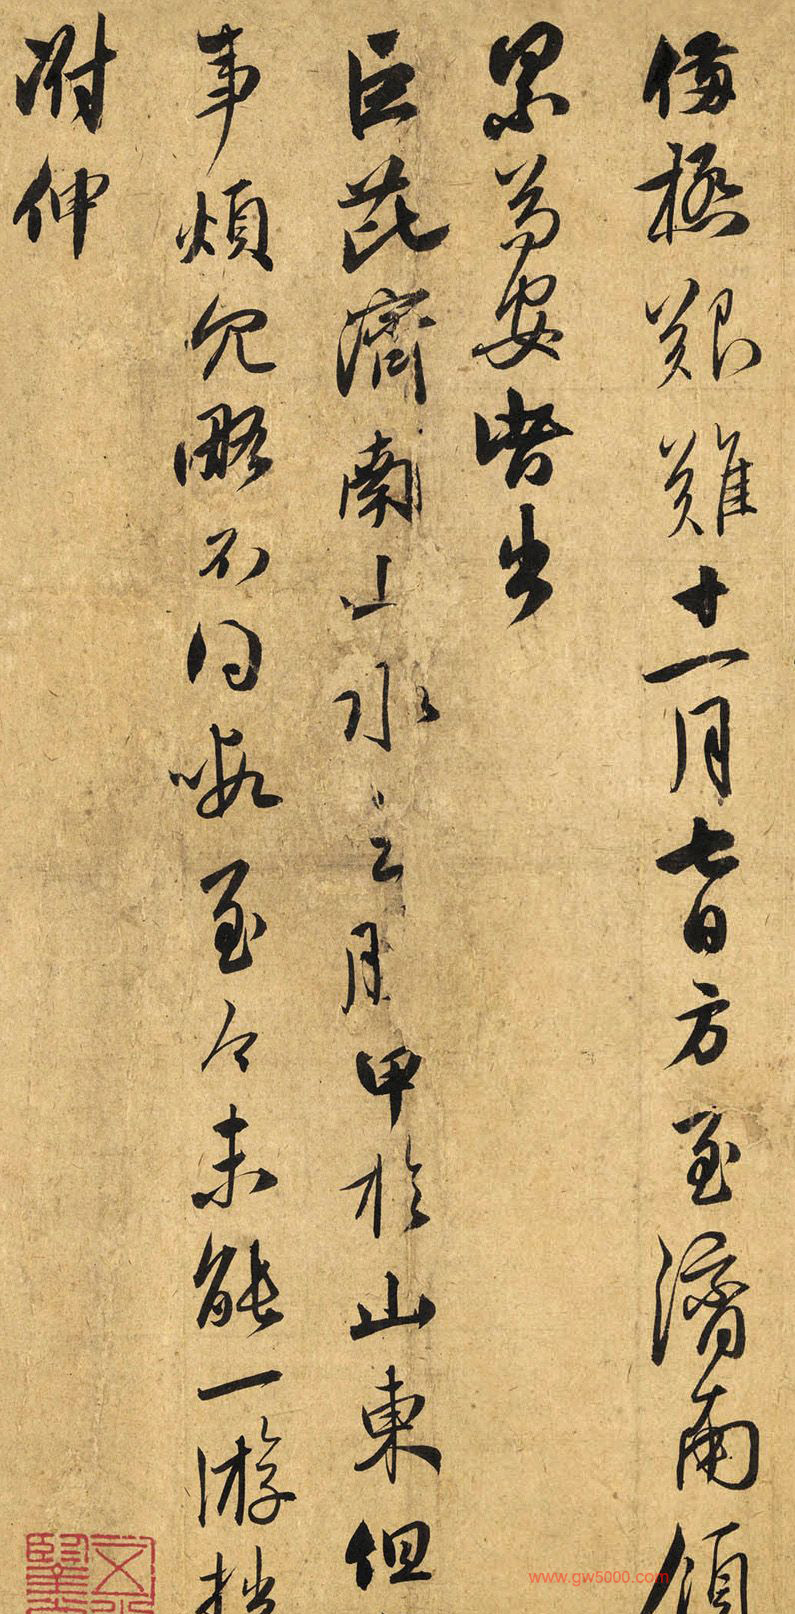 備極艱難十一月七日方至濟南領
累苟安皆出
巨芘濟南山水之勝甲於山東但
事煩冗略不得暇至今未能一游拙
附伸
www.gw5000.com